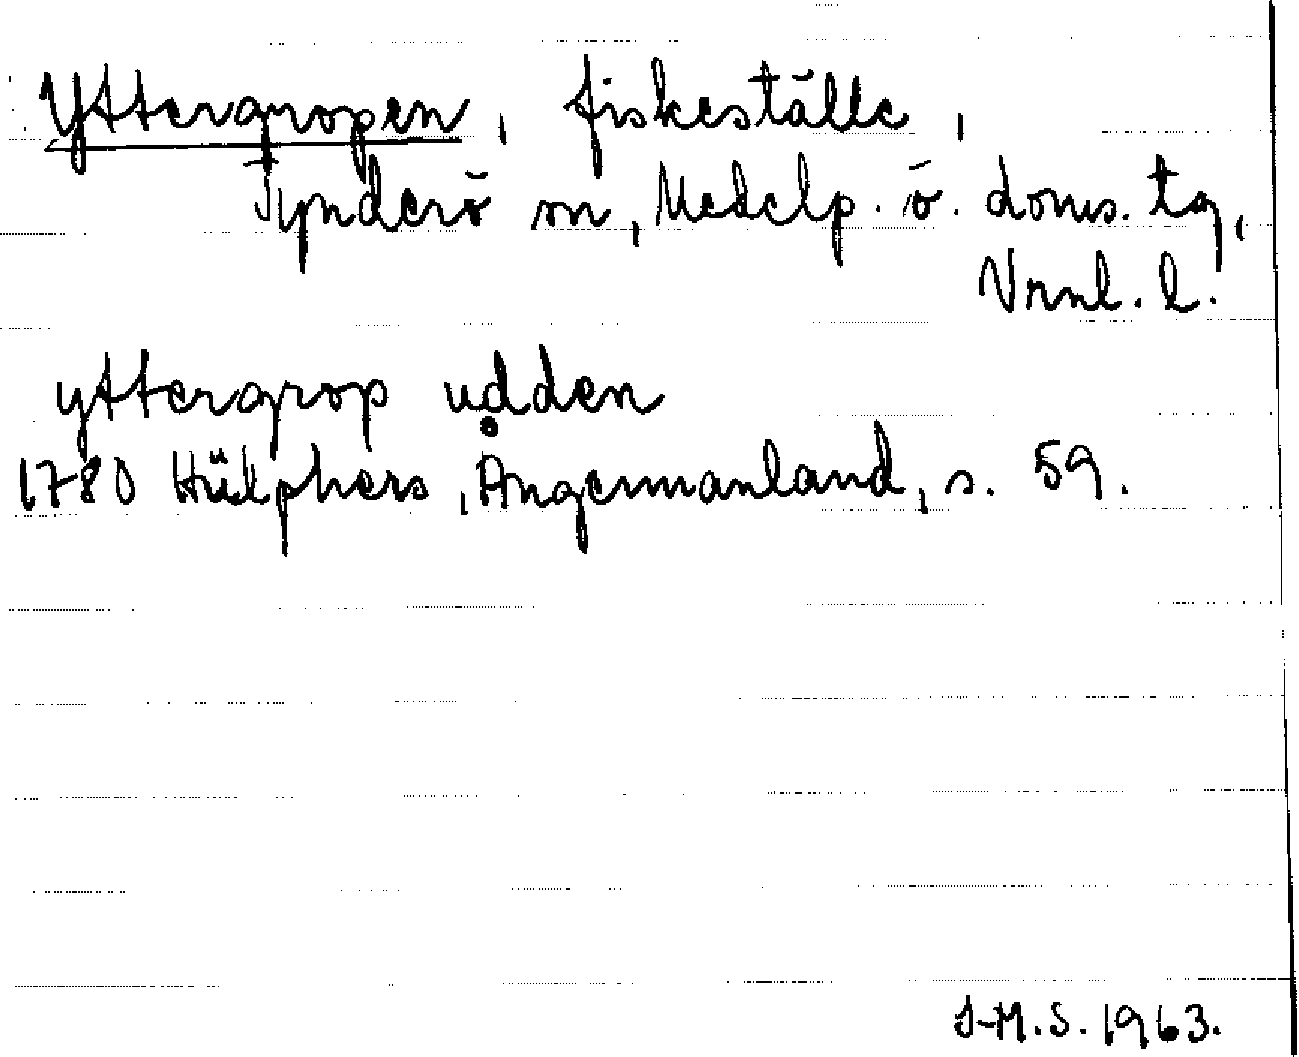 Yttergropen, fiskeställe,
Tynderö sn, Medelp. ö. doms. tg,
Vrnl. l.
yttergrop udden
1780 Hülphers, Ångermanland, s. 59.
J-M.S. 1963.